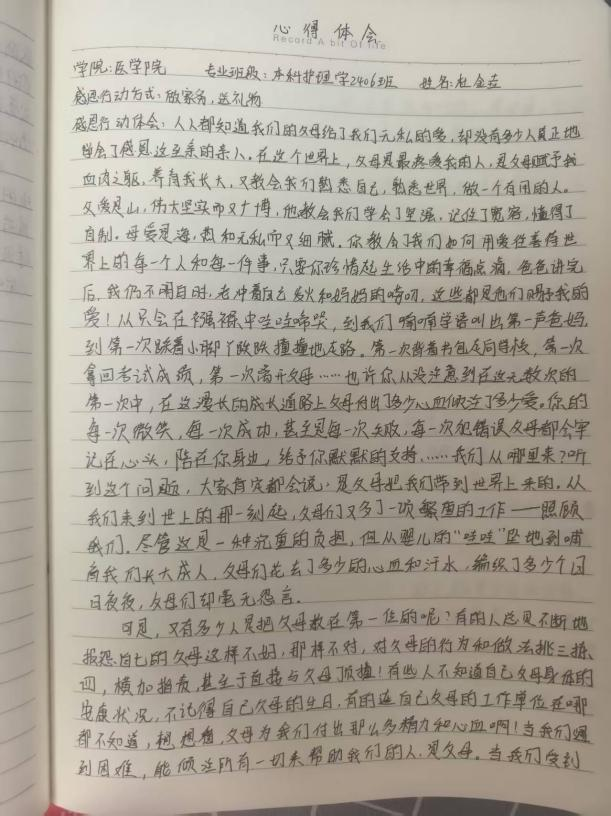 心得体会
Record A bit Of life
学院:医学院 专业班级:本科护理学2406班 姓名:杜金垚
感恩行动方式:做家务,送礼物
感恩行动体会:人人都知道我们的父母给了我们无私的爱,却没有多少人真正地
学会了感恩这至亲的亲人。在这个世界上,父母是最疼爱我的人,是父母赋予我
血肉之躯,养育我长大,又教会我们熟悉自己,熟悉世界,做一个有用的人。
父爱是山,伟大坚实而又广博,他教会我们学会了坚强,记住了宽容,懂得了
自制。母爱是海,热和无私而又细腻。你教会了我们如何用爱往善待世
界上的每一个人和每一件事,只要你珍惜起生活中的幸福点滴,爸爸讲完
后,我仍不闹自时,老冲着自己发火和妈妈的唠叨,这些都是他们赐予我的
爱!从只会在襁褓中哇哇啼哭,到我们喃喃学语叫出第一声爸妈,
到第一次踩着小脚丫跌跌撞撞地走路。第一次背着书包走向学校,第一次
拿回考试成绩,第一次离开父母……也许你从没注意到在这无数次的
第一次中,在这漫长的成长道路上父母付出了多少心血倾注了多少爱。你的
每一次微笑,每一次成功,甚至是每一次失败,每一次犯错误父母都会牢
记在心头,陪在你身边,给予你默默的支持……我们从哪里来?听
到这个问题,大家肯定都会说:是父母把我们带到世界上来的。从
我们来到世上的那一刻起,父母们又多了一项繁重的工作——照顾
我们。尽管这是一种沉重的负担,但从婴儿的“哇哇”坠地到哺
育我们长大成人,父母们花去了多少的心血和汗水,编织了多少个日
日夜夜,父母们却毫无怨言。
可是,又有多少人是把父母放在第一位的呢?有的人总是不断地
报怨自己的父母这样不好,那样不对,对父母的行为和做法挑三拣
四,横加指责,甚至于直接与父母顶撞!有些人不知道自己父母身体的
健康状况,不记得自己父母的生日,有的连自己父母的工作单位在哪
都不知道,想想看,父母为我们付出那么多精力和心血啊!当我们遇
到困难,能倾注所有一切来帮助我们的人,是父母。当我们受到